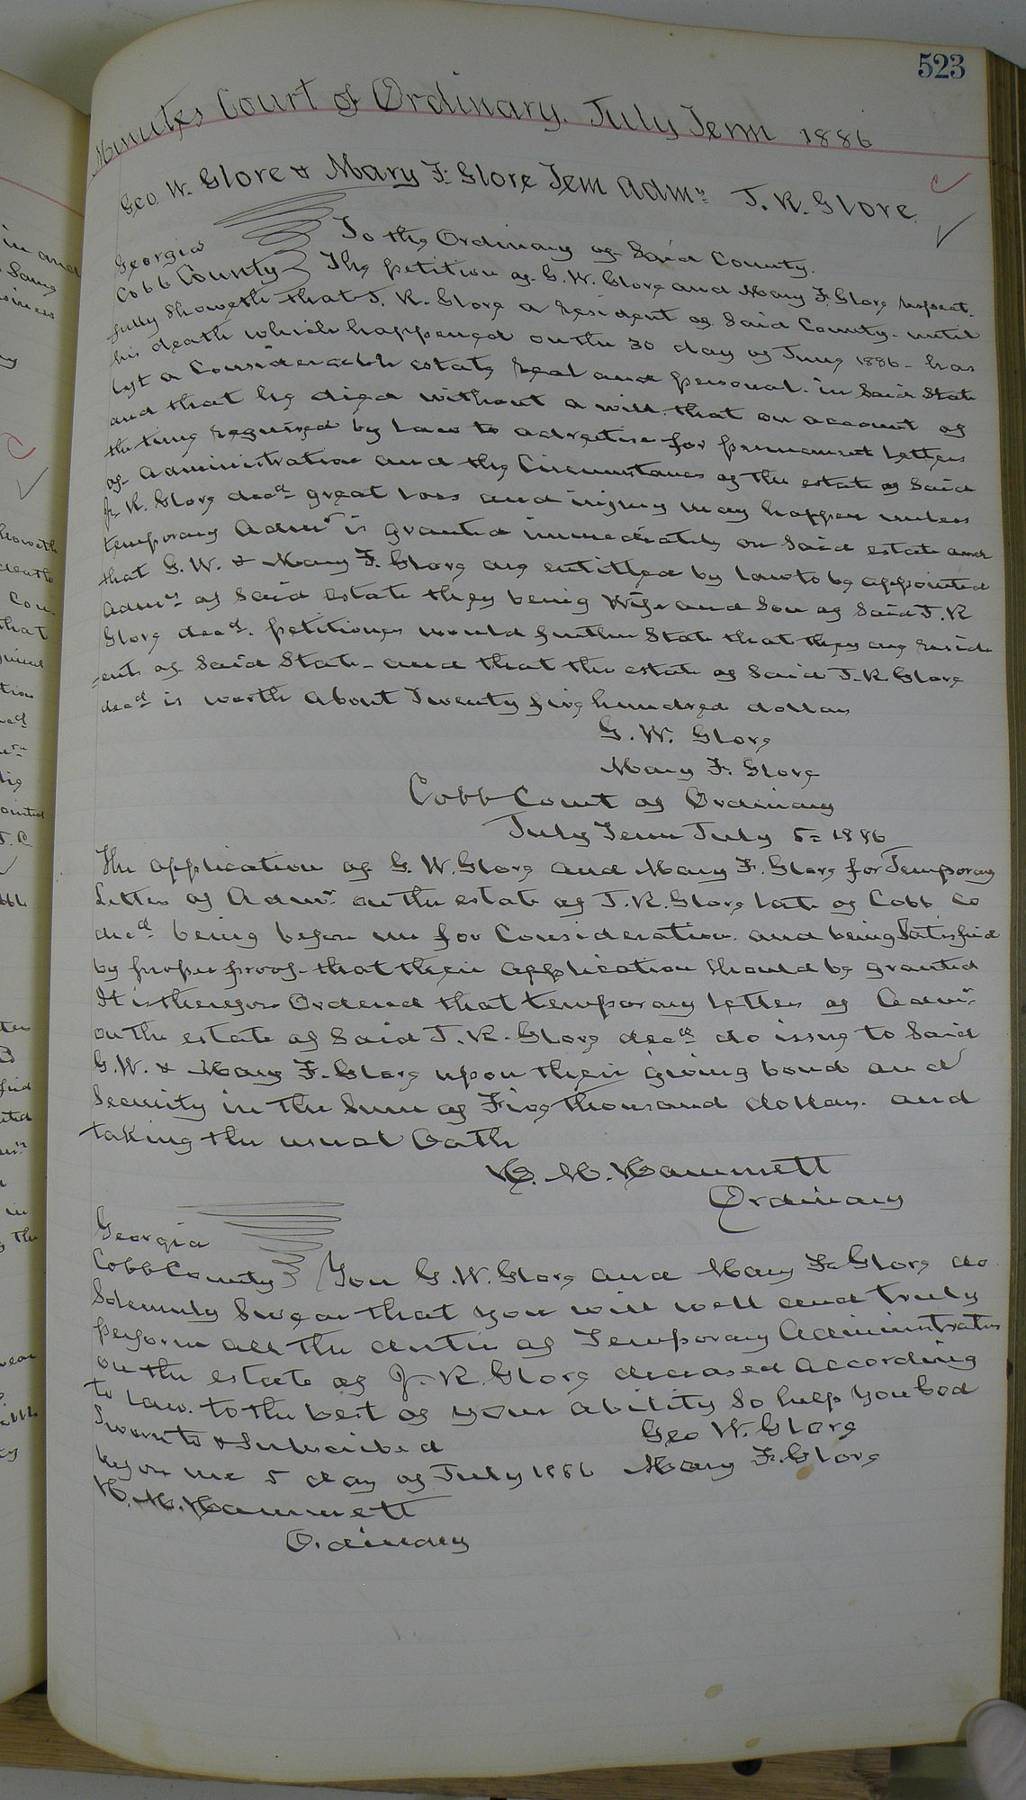 523
Minutes Court of Ordinary. July Term 1886
Geo W. Glore & Mary F. Glore Tem Admrs J. R. Glore
Georgia
Cobb County To the Ordinary of Said County.
The petition of G. W. Glore and Mary F. Glore respect-
fully Showeth that J. R. Glore a resident of Said County until
his death which happened on the 30 day of June 1886 - has
left a Considerable estate real and personal in Said State
and that he died without a will that on account of
the time required by law to advertise for permanent letters
of Administration and the Circumstances of the estate of Said
J. R. Glore decd great loss and injury may happen unless
temporary Admr is granted immediately on Said estate and
that G. W. & Mary F. Glore are entitled by law to be appointed
Admrs of Said estate they being Wife and Son of Said J. R
Glore decd. petitioners would further State that they are resid
-ents of Said State - and that the estate of Said J. R Glore
decd is worth about Twenty five hundred dollars
G. W. Glore
Mary F. Glore
Cobb Court of Ordinary
July Term July 5= 1886
The application of G. W. Glore and Mary F. Glore for Temporary
Letters of Admr. on the estate of J. R. Glore late of Cobb Co
decd being before me for Consideration. and being Satisfied
by proper proof that their application Should be granted
It is therefore Ordered that temporary letters of Admr.
on the estate of Said J. R. Glore decd do issue to Said
G. W. & Mary F. Glore upon their giving bond and
Security in the Sum of Five thousand dollars. and
taking the usual Oath
H. M. Hammett
Ordinary
Georgia
Cobb County You G. W. Glore and Mary F. Glore do
Solemnly Swear that you will well and truly
perform all the duties of Temporary Administrators
on the estate of J. R. Glore deceased according
to law. to the best of your ability So help you God
Sworn to & Subscribed Geo W. Glore
before me 5 day of July 1886 Mary F. Glore
H. M. Hammett
Ordinary